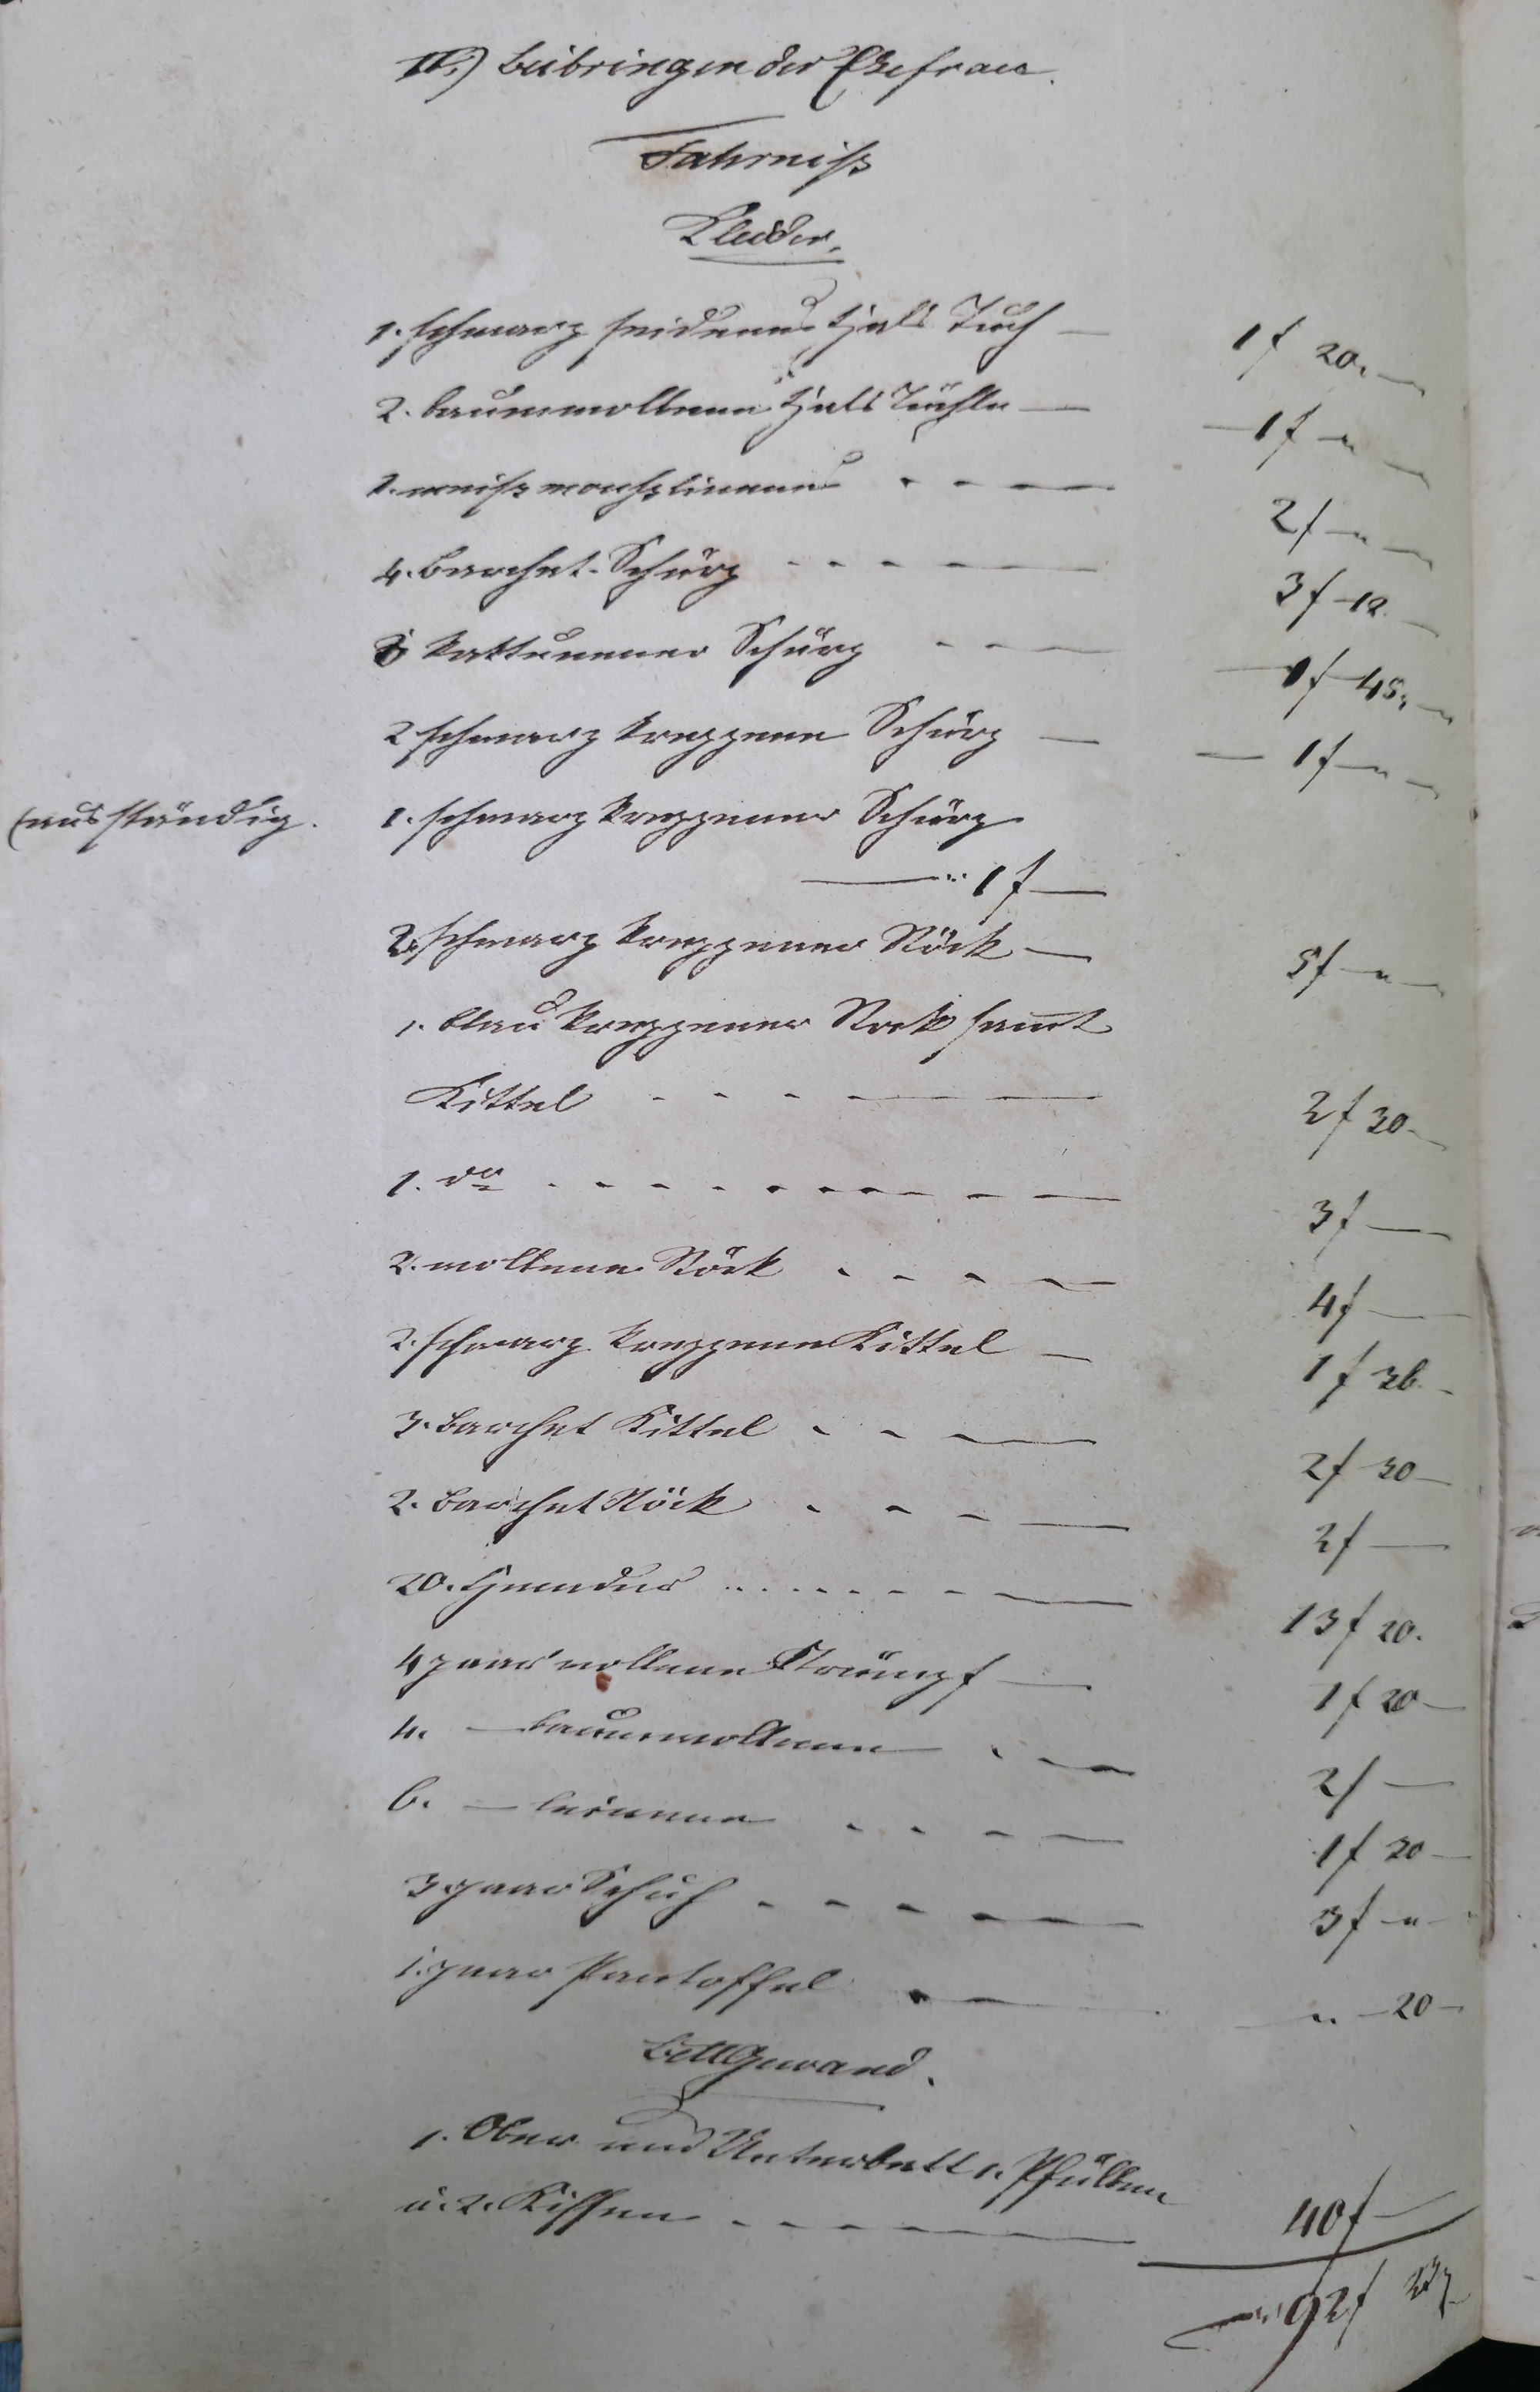 II.) Beibringen der Ehefrau.
Fahrniß
Kleider.
1. schwarz seidenes Hals Tuch — 1 f 20. —
2. baumwollene Hals Tüchle — — 1 f — " —
1. weiß mousslinenes . - - — 2 f — " —
4. Barchet-Schürz - - - — 3 f — 12. —
kattunener Schürz - - — — 1 f 45. "
2 schwarz kreppene Schürz — — 1 f — " —
(ausständig. 1. schwarz kreppener Schürz
— " 1 f —
2. schwarz kreppener Röck — 5 f — " —
1. blau kreppener Rock samt
Kittel - - - — — 2 f 30 —
1. do . - - - - - - - - — 3 f —
2. wollene Röck . - - — 4 f —
2. schwarz kreppene Kittel — 1 f 36. -
3. Barchet Kittel - - — 2 f 30 —
2. Barchet Röck - - - — 2 f —
20. Hemder - - - - - — 13 f 20.
4 paar wollene Strümpf — 1 f 20 —
4. — baumwollene . - — 2 f —
6. — leinene . - - — 1 f 30 —
3 paar Schuh - - - - — 3 f — " —
1. paar Pantoffel . — — " — 20 —
Bettgewand.
1. Ober und Unterbett 1. Pfülben
u. 2. Kissen - - - - — 40 f —
92 f